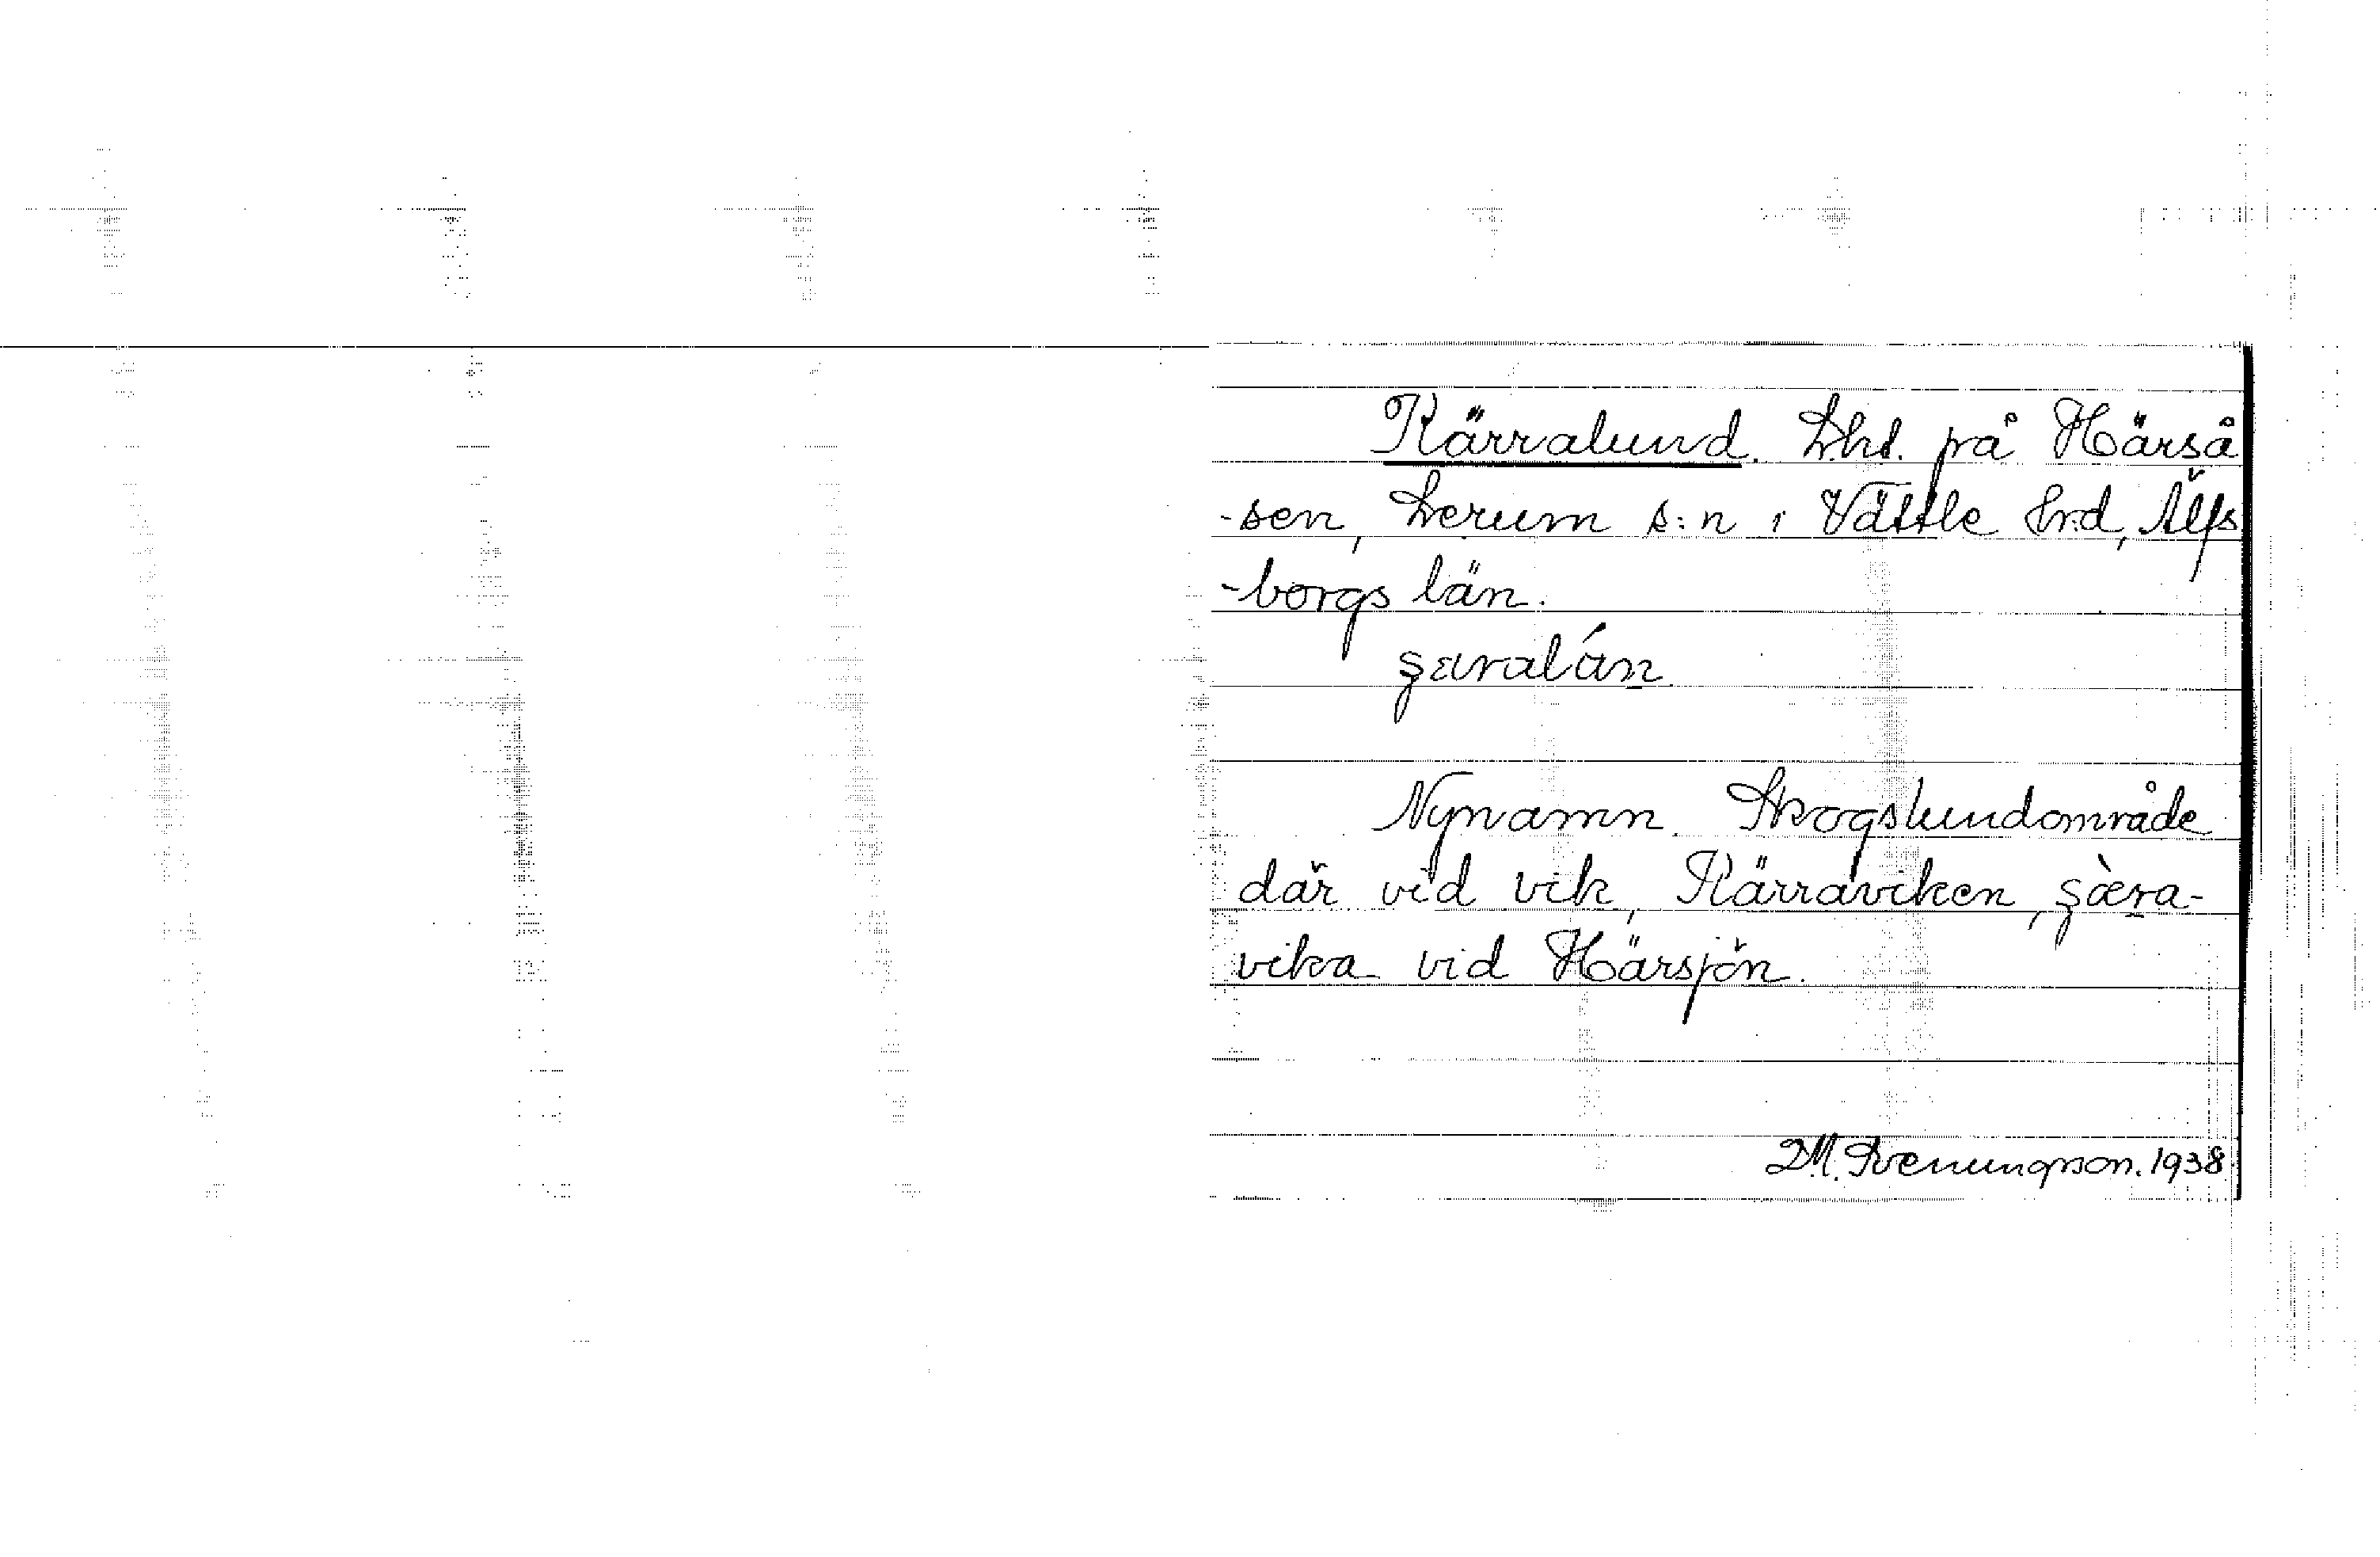 Kärralund. Lht. på Härså
-sen, Lerum s:n i Vättle hrd, Älfs
-borgs län.
Nynamn. Skogslundområde
där vid vik, Kärraviken, şæra-
vika vid Härsjön.
D.M. Svenungsson. 1938